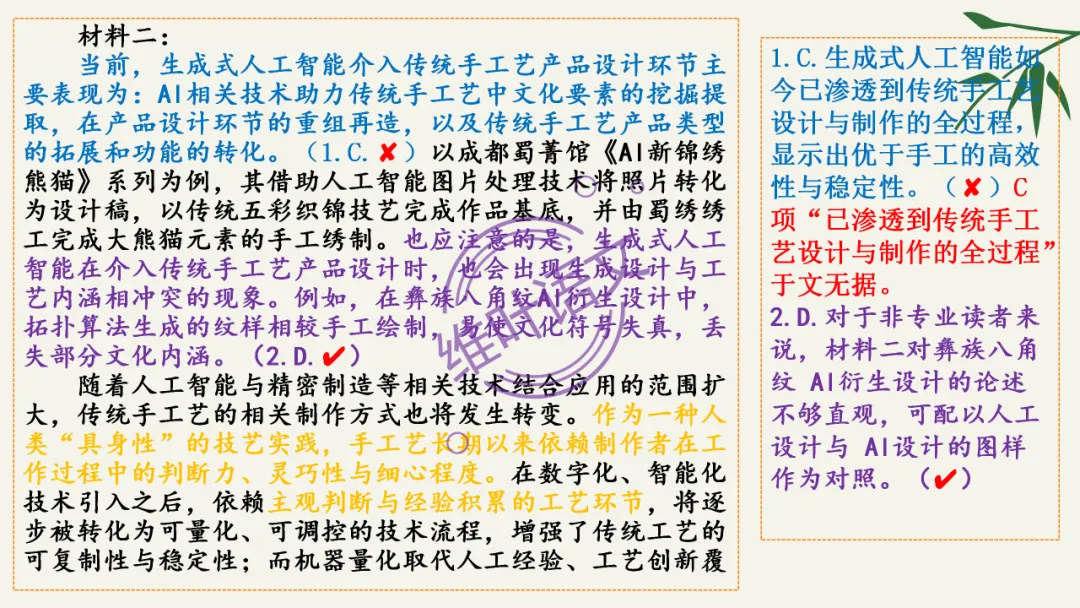 材料二：
当前，生成式人工智能介入传统手工艺产品设计环节主
要表现为：AI相关技术助力传统手工艺中文化要素的挖掘提
取，在产品设计环节的重组再造，以及传统手工艺产品类型
的拓展和功能的转化。（1.C.✘）以成都蜀菁馆《AI新锦绣
熊猫》系列为例，其借助人工智能图片处理技术将照片转化
为设计稿，以传统五彩织锦技艺完成作品基底，并由蜀绣绣
工完成大熊猫元素的手工绣制。也应注意的是，生成式人工
智能在介入传统手工艺产品设计时，也会出现生成设计与工
艺内涵相冲突的现象。例如，在彝族八角纹AI衍生设计中，
拓扑算法生成的纹样相较手工绘制，易使文化符号失真，丢
失部分文化内涵。（2.D.✔）
随着人工智能与精密制造等相关技术结合应用的范围扩
大，传统手工艺的相关制作方式也将发生转变。作为一种人
类“具身性”的技艺实践，手工艺长期以来依赖制作者在工
作过程中的判断力、灵巧性与细心程度。在数字化、智能化
技术引入之后，依赖主观判断与经验积累的工艺环节，将逐
步被转化为可量化、可调控的技术流程，增强了传统工艺的
可复制性与稳定性；而机器量化取代人工经验、工艺创新覆
1.C.生成式人工智能如
今已渗透到传统手工艺
设计与制作的全过程，
显示出优于手工的高效
性与稳定性。（✘）C
项“已渗透到传统手工
艺设计与制作的全过程”
于文无据。
2.D.对于非专业读者来
说，材料二对彝族八角
纹 AI衍生设计的论述
不够直观，可配以人工
设计与 AI设计的图样
作为对照。（✔）
维叶语文